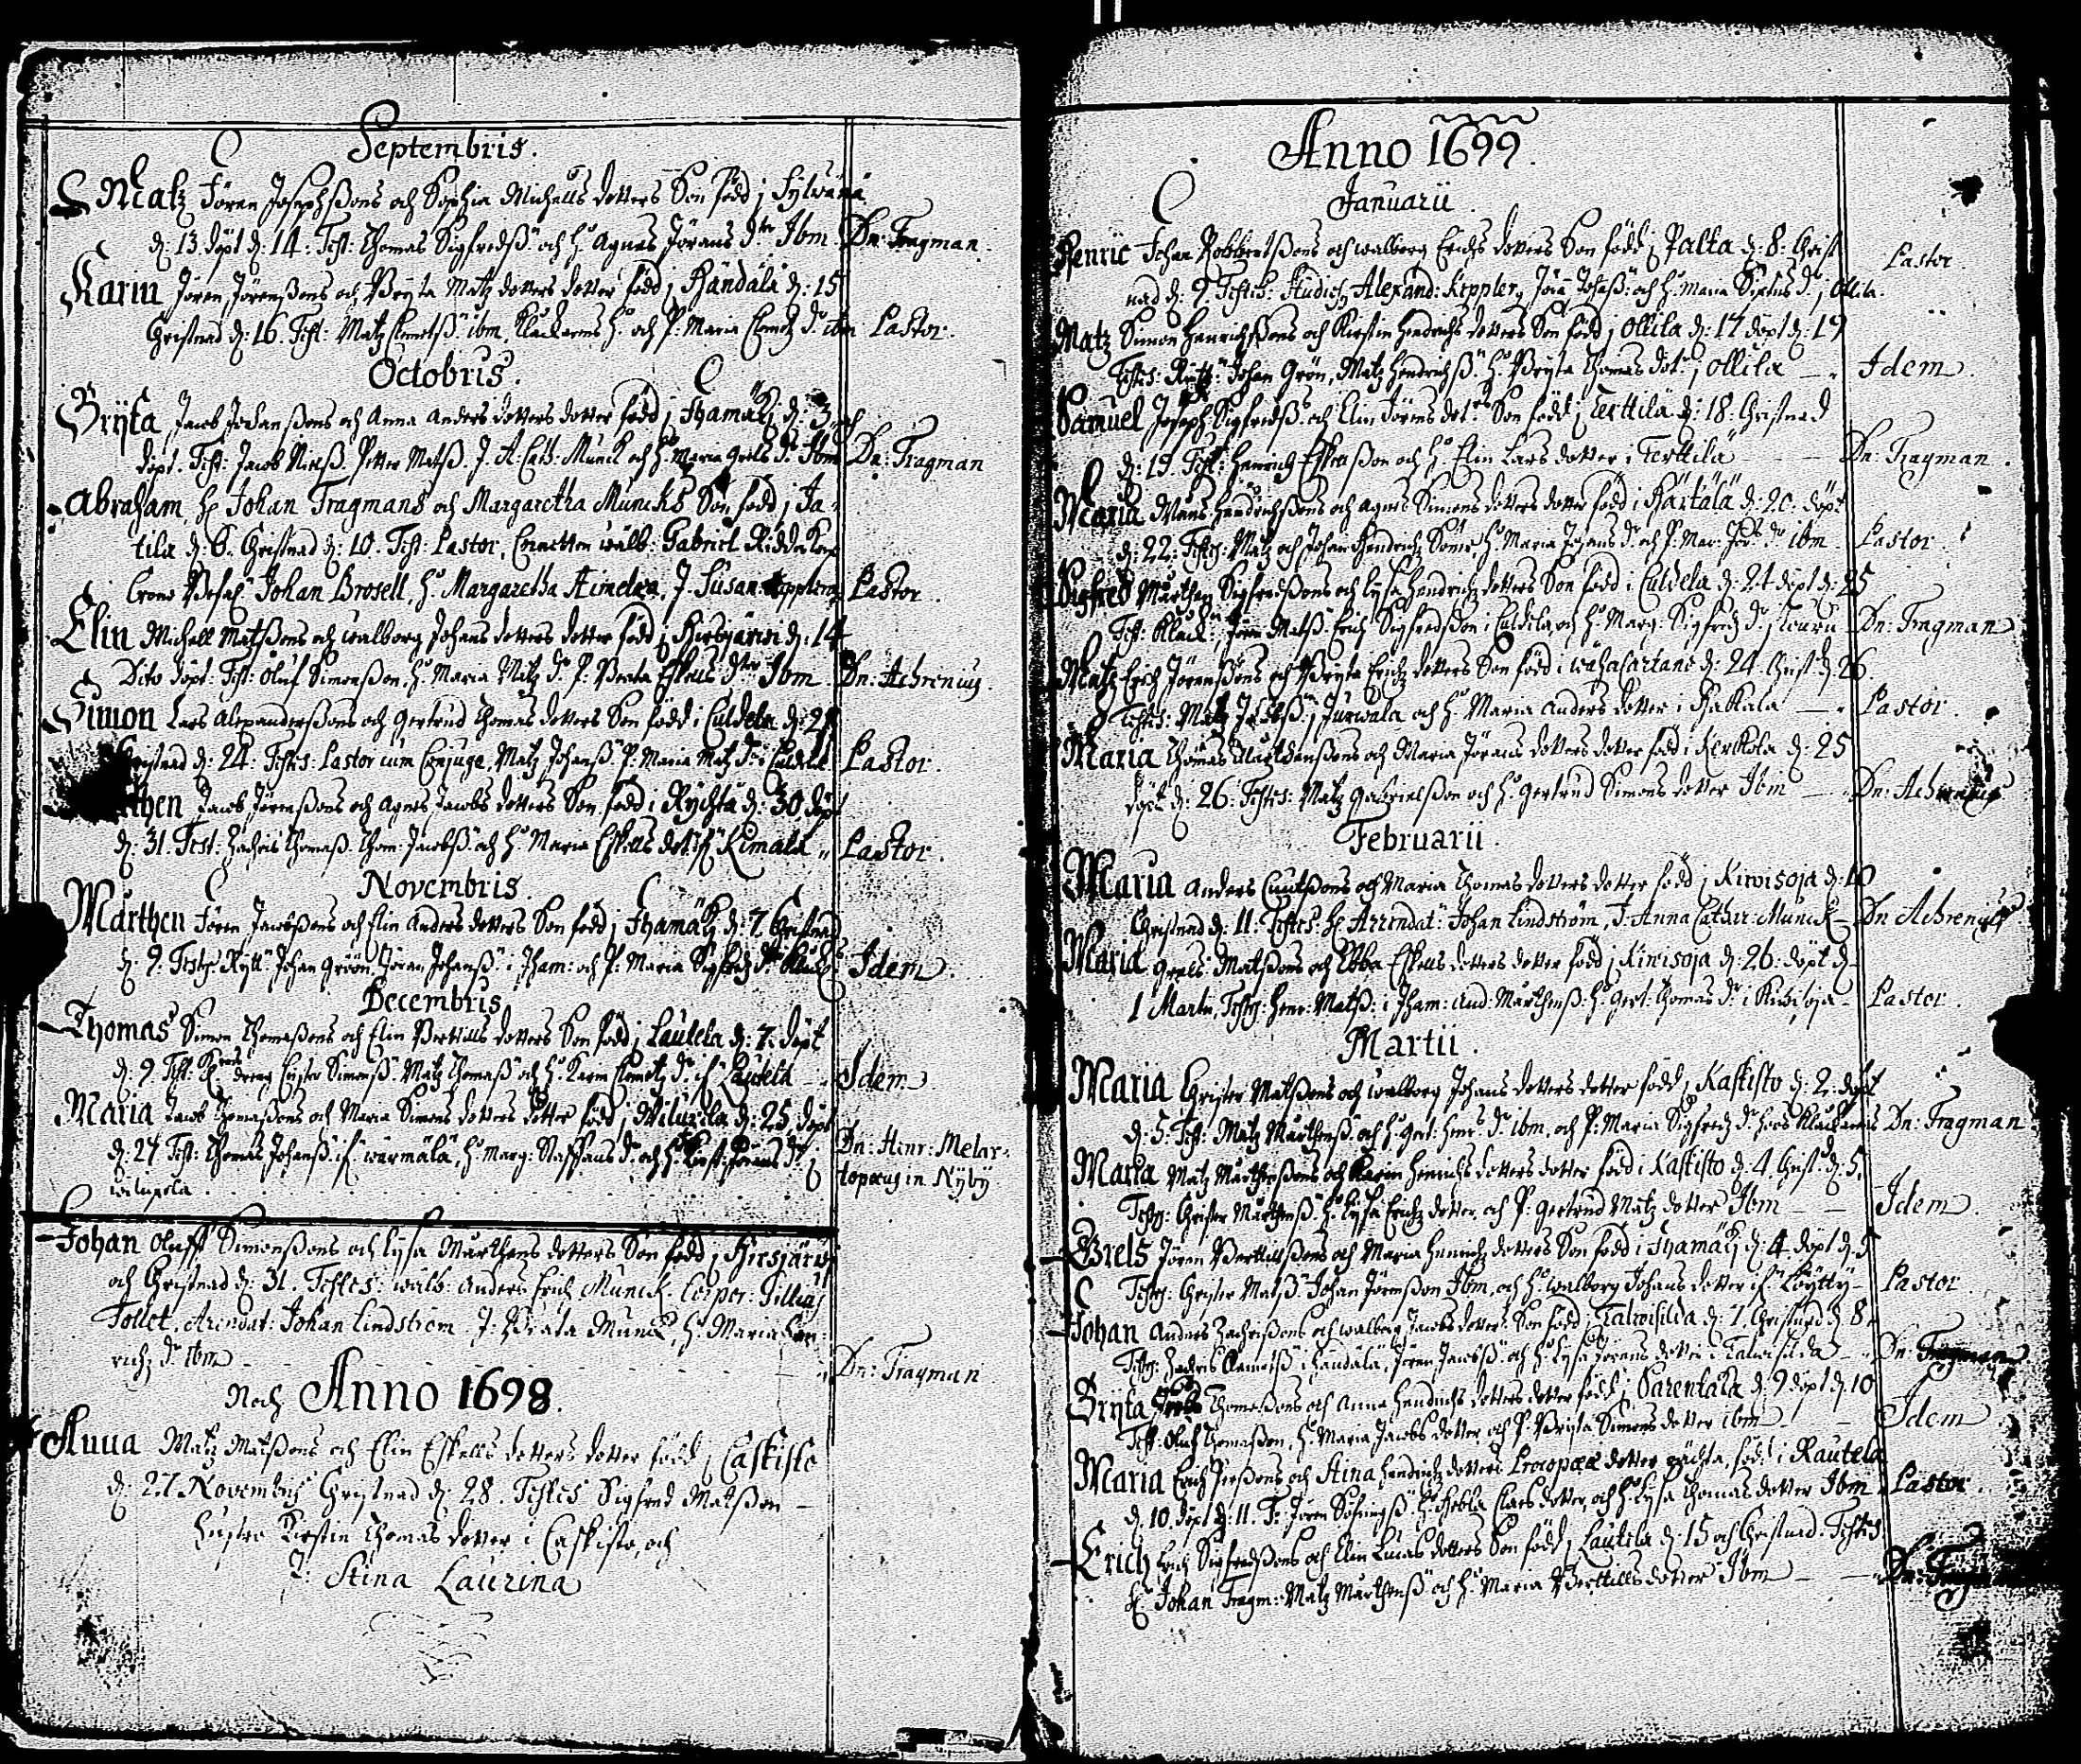 Septembris.
Matz Jören Josephssons och Sophia Michells dotters Son född j Sylwänä
d: 13 döpt d: 14. Test: Thomas Sigfredss. och H. Agnes Jörans dr Ibm. Dn: Tragman.
Karin Jören Jörenssons och Bryta Matz dotters dotter född j Händälä d: 15
Christnad d: 16. Test: Matz Clemetss. ibm, Klåckarens H. och P: Maria Clemetz dr ibm Pastor.
Octobris.
Bryta Jacob Johanssons och Anna Anders dotters dotter född j Ihamäki d: 3 och
döpt. Test: Jacob Nielss. Petter Matss. J. A. Cath: Munck och H. Maria Grels dr Ibm Dn: Tragman
Abraham, H. Johan Tragmans och Margaretha Muncks Son född j Ja-
tila d: 6. Christnad d: 10. Test: Pastor, Cornetten wälb: Gabriel Ridderkorp
Crono Befal. Johan Brosell, H. Margaretha Aimelea, J. Susan: Keppleng Pastor.
Elin Michell Matssons och Walborg Johans dotters dotter född j Hirsjärwi d: 14
Dito döpt: Test: Oluf Simonsson, H. Maria Matz dr P: Beata Eskells dr Ibm Dn: Achrenius.
Simon Lars Alexanderssons och Gertrud Thomas dotters Son född i Culdela d: 21
Christnad d: 24: Testes: Pastor cum Conjuge, Matz Johanss. P: Maria Matz dr i Culdela Pastor.
then Jacob Jörenssons och Agnes Jacobs dotters Son född i Rychtä d: 30 döpt
d: 31. Test: Zachris Thomass. Thom: Jacobss. och H. Maria Eskells dott. if. Kimala Pastor.
Novembris.
Marthen Jören Jacobssons och Elin Anders dotters Son född j Ihamäki d: 7. Christnad
d: 9. Testes Rytt. Johan Gröön, Jöran Johanss. i Iham: och P: Maria Sigfredz dr Idem.
Decembris
Thomas Simon Thomassons och Elin Bertills dotters Son född j Lautela d: 7. döpt
d: 9. Test: dreng Crister Simonss. Matz Thomass. och H. Karin Clemetz dr if. Lautela Idem
Maria Jacob Thomassons och Maria Simons dotters dotter född j Wiluxela d: 25 döpt
d: 27 Test: Thomas Johanss. if. Wärmälä, H. Marg: Staffans dr och H. Kirst: Jörans dr j Dn: Hinr: Melar-
Wiluxela. topæus in Nyby.
Johan Oluff Simonssons och Lysa Marthens dotters Son född j Hirsjärwi
och Christnad d: 31. Testes: wälb: Anders Erich Munck. Corpor: Tillias
Tollet, Arendat: Johan Lindström, J: Beata Munck, H. Maria Hen-
richz dr Ibm Dn: Tragman
Noch Anno 1698.
Anna Matz Matssons och Elin Eskells dotters dotter född j Caskisto
d: 27 Novembris Christnad d: 28. Testes Sigfred Matsson
Hustru Kirstin Thomas dotter i Caskisto, och
J: Stina Laurina
Anno 1699.
Januarii
Henric Johan Robbertssons och Walborg Erichs dotters Son född j Palta d: 8: Christ
nad d: 9. Testes: Studios. Alexand: Keppler, Jöra Johass: och H. Maria Sixtus dr j Ollila. Pastor.
Matz Simon Henrichssons och Kirstin Hendrichs dotters Son född j Ollila d: 17 döpt d: 19
Testes: Rytt: Johan Grön, Matz Hendrichss. H. Bryta Thomas dot: j Ollila Idem.
Samuel Joseph Sigfredss. och Elin Jörens dotrs Son född j Terttilä d: 18: Christnad
d: 19. Test: Henrich Eskellsson och H. Elin Lars dotter i Terttilä Dn: Tragman.
Maria Måns Hendrichssons och Agnes Simons dotters dotter född i Härtälä d: 20. döpt
d: 22. Testes: Matz och Johan Hendrichz Söner, H. Maria Johans dr och P: Mar: Jör: dr ibm Pastor.
Sigfred Marthen Sigfredssons och Lysa Hendrichz dotters Son född i Culdela d: 24 döpt d: 25
Test: Klåck: Jören Matss. Erich Sigfredsson i Culdela, och H. Marg: Sigfredz dr Dn: Tragman
Matz Erich Jörenssons och Bryta Erichz dotters Son född i Wähäcartano d: 24. Christ d: 26.
Testes: Matz Jacobss. j Juxwala och H. Maria Anders dotter i Hakkala Pastor.
Maria Thomas Marthenssons och Maria Jörans dotters dotter född i Kerkola d: 25
döpt d: 26: Testes: Matz Gabrielsson och H. Gertrud Simons dotter Ibm Dn: Achrenius
Februarii.
Maria Anders Cnutssons och Maria Thomas dotters dotter född j Kiwisoja d: 10
Christnad d: 11: Testes H. Arrendat: Johan Lindström, J. Anna Cathar: Munck Dn Achrenius
Maria Grels Matssons och Ebba Eskells dotters dotter född j Kiwisoja d: 26: döpt d
1 Martii, Testes: Henr: Matss: i Iham: And: Marthenss: H: Gert: Thomas dr i Kiwisoja Pastor.
Martii.
Maria Christer Matssons och Walborg Johans dotters dotter född j Kaskisto d: 2. döpt
d: 5: Test: Matz Marthenss. och H. Gert: Henr: dr ibm, och P: Maria Sigfredz dr hoos Klåckarens Dn: Tragman
Maria Matz Marthenssons och Karin Henrichs dotters dotter född i Kaskisto d: 4. Christ d: 5.
Testes: Christer Marthenss: H. Lysa Erichz dotter, och P: Gertrud Matz dotter Ibm Idem.
Grels Jören Berttillssons och Maria Henrichz dotters Son född i Ihamäki d: 4. döpt d. 5
Testes: Christer Matss. Johan Jörensson Ibm, och H. Walborg Johans dotter if. Löyttÿ Pastor.
Johan Anders Zachrissons och Walborg Jacobs dotters Son född j Talwisilda d: 7. Christnad d 8.
Testes: Zachris Clemetss. i Händälä, Jören Jacobss. och H. Lysa Jörans dotter i Talwisilda Dn: Tragman
Bryta Thomassons och Anna Hendrichs dotters dotter född j Sarentaka d: 9 döpt d. 10
Test: Oluf Thomasson, H. Maria Jacobs dotter och P: Bryta Simons dotter ibm Idem
Maria Erich Perssons och Stina Hendrichz dotters Procopææ dotter född i Rautela
d. 10. döpt d: 11. T: Jören H. Hebla Claes dotter, och H. Lysa Thomas dotter Ibm Pastor.
Erich Erich Sigfredssons och Elin Lucas dotters Son född j Lautela d 15 och Christnad. Testes
H. Johan Tragm: Matz Marthenss. och H. Maria Berttills dotter Ibm Dn: